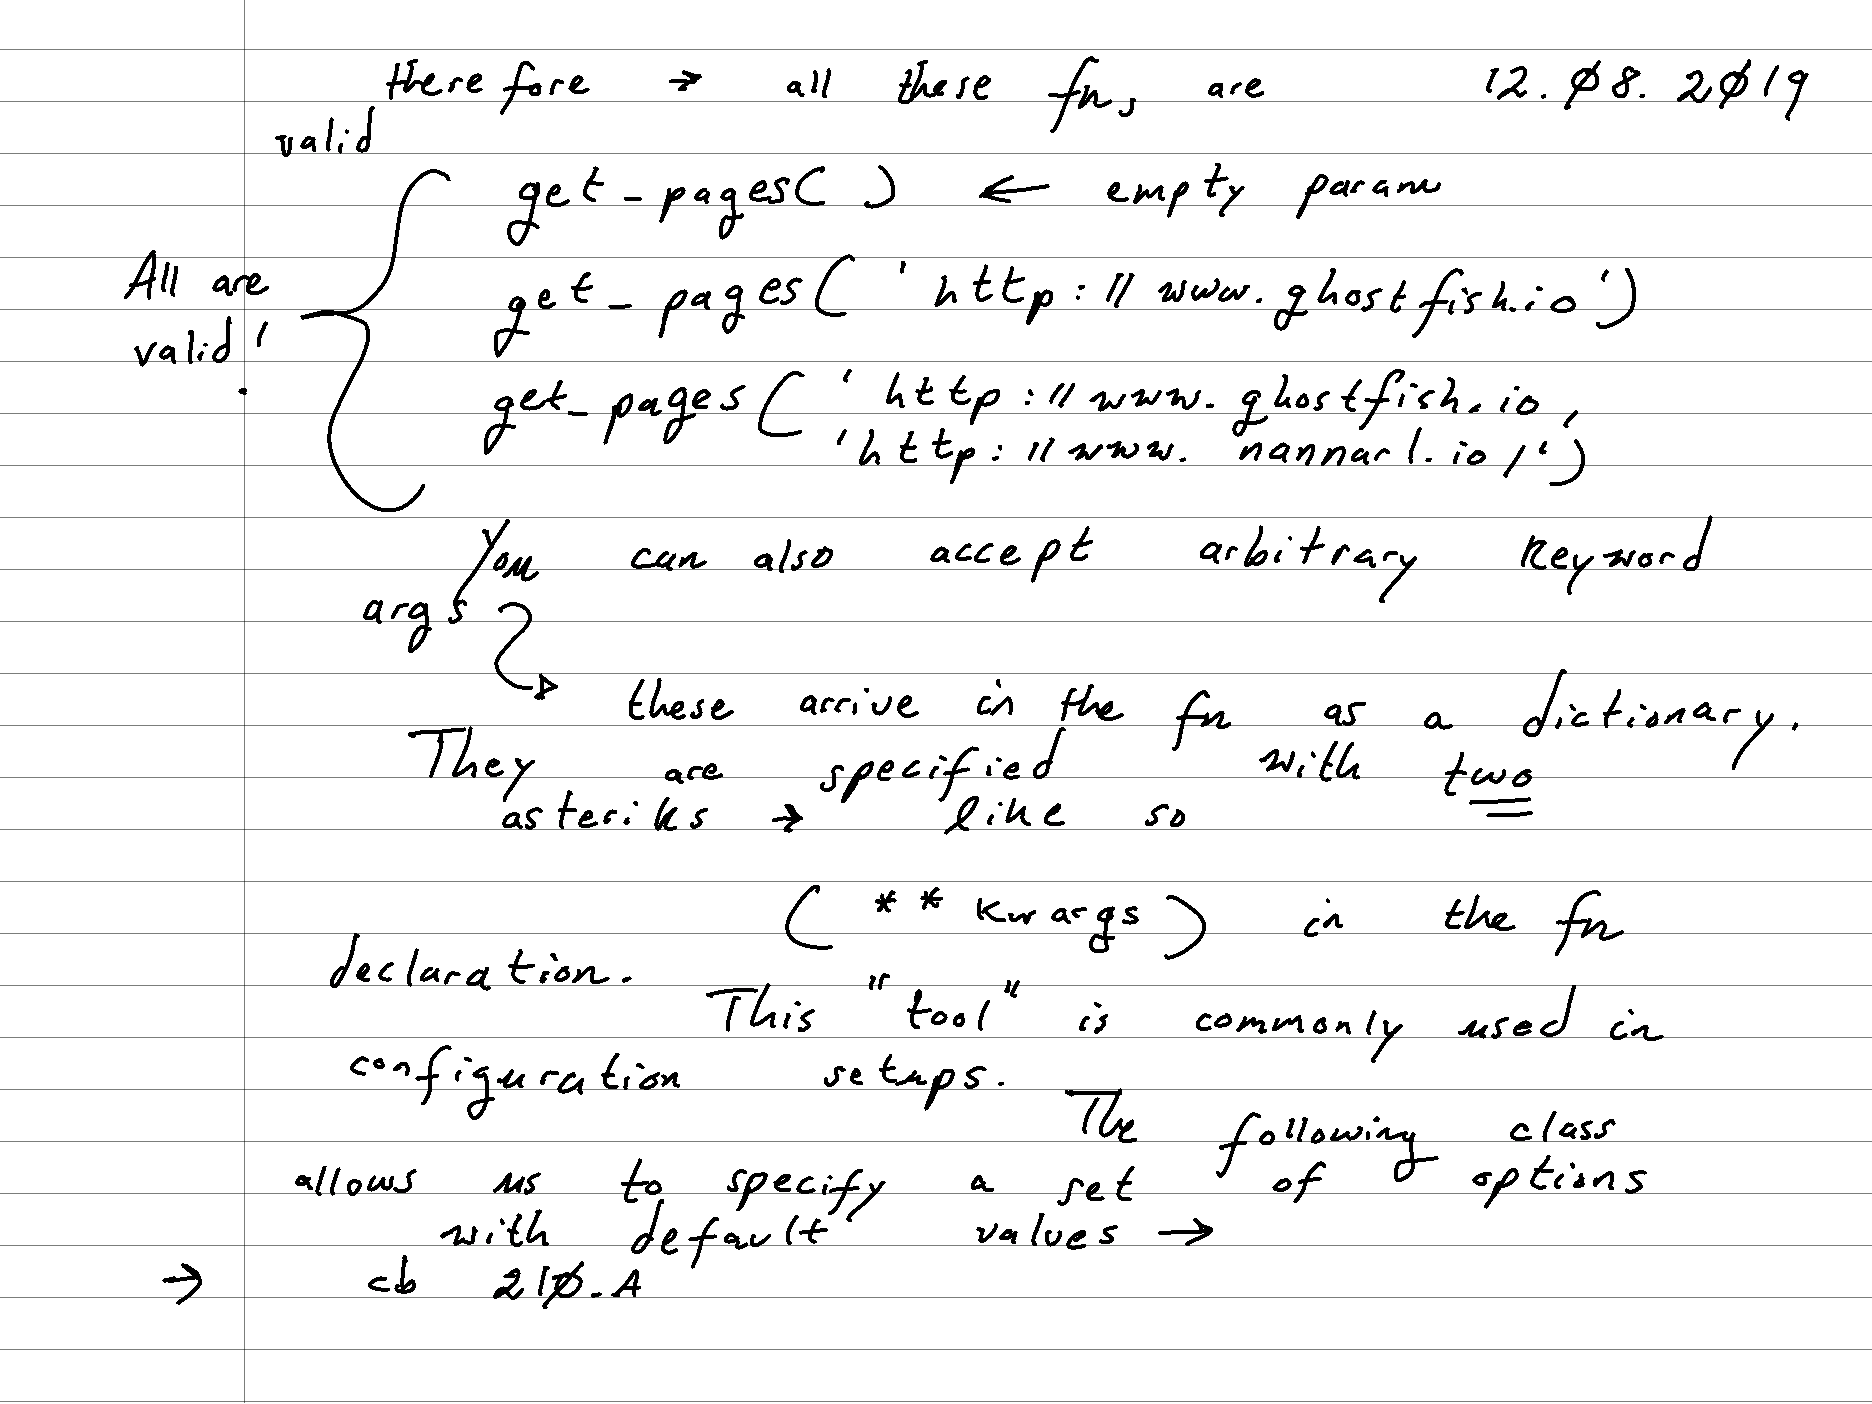 therefore → all these fns are 12.08.2019
valid
get_pages( ) ← empty param
All are
valid!
get_pages('http://www.ghostfish.io')
get_pages('http://www.ghostfish.io,
'http://www.nannarl.io/')
You can also accept arbitrary keyword
args
these arrive in the fn as a dictionary.
They are specified with two
asteriks → like so
(**kwargs) in the fn
declaration.
This "tool" is commonly used in
configuration setups.
The following class
allows us to specify a set of options
with default values →
→ cb 210.A